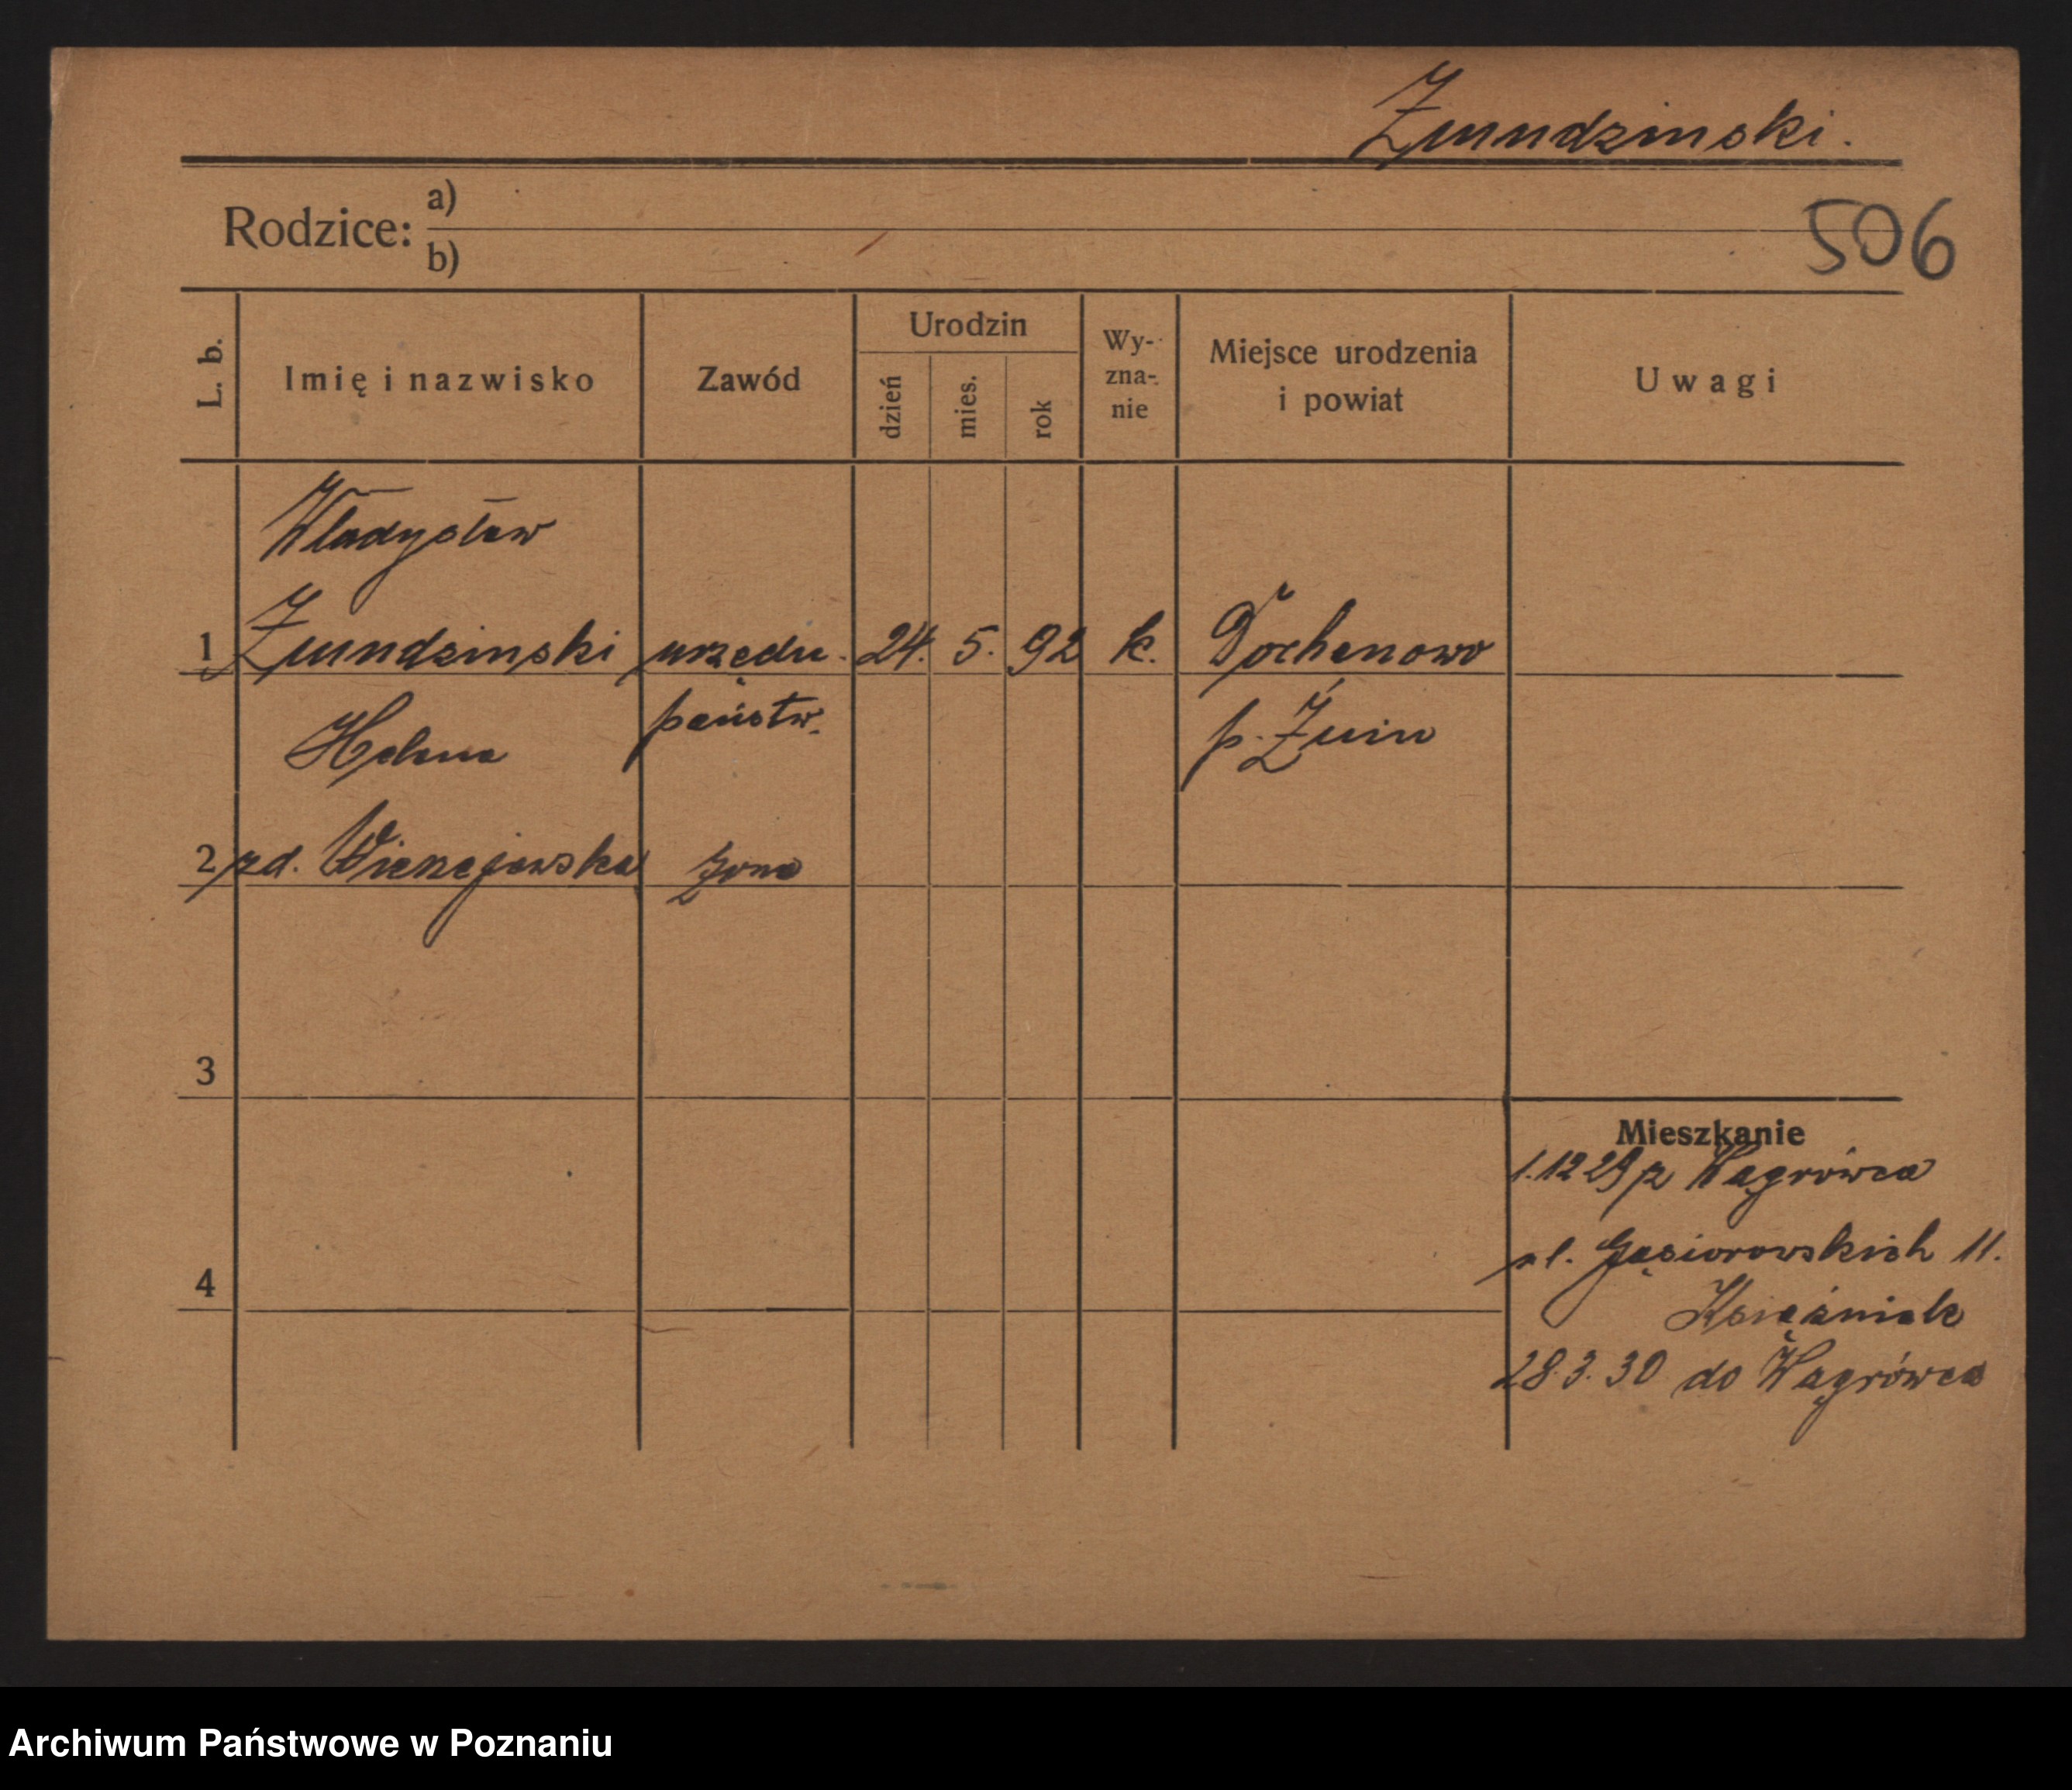 Żmudzinski.
Rodzice: a)
b)
506
L. b.
Imię i nazwisko
Zawód
Urodzin
dzień
mies.
rok
Wy-
zna-
nie
Miejsce urodzenia
i powiat
Uwagi
Władysław
1 Żmudzinski urzędn. 24. 5. 92 k.
państw.
p. Żnin
Helena
2 zd. żona
3
4
Mieszkanie
1.12 29 z Wągrówca
ul. Gąsiorowskich 11.
Księźniak
28.3.30 do Wągrówca
Archiwum Państwowe w Poznaniu